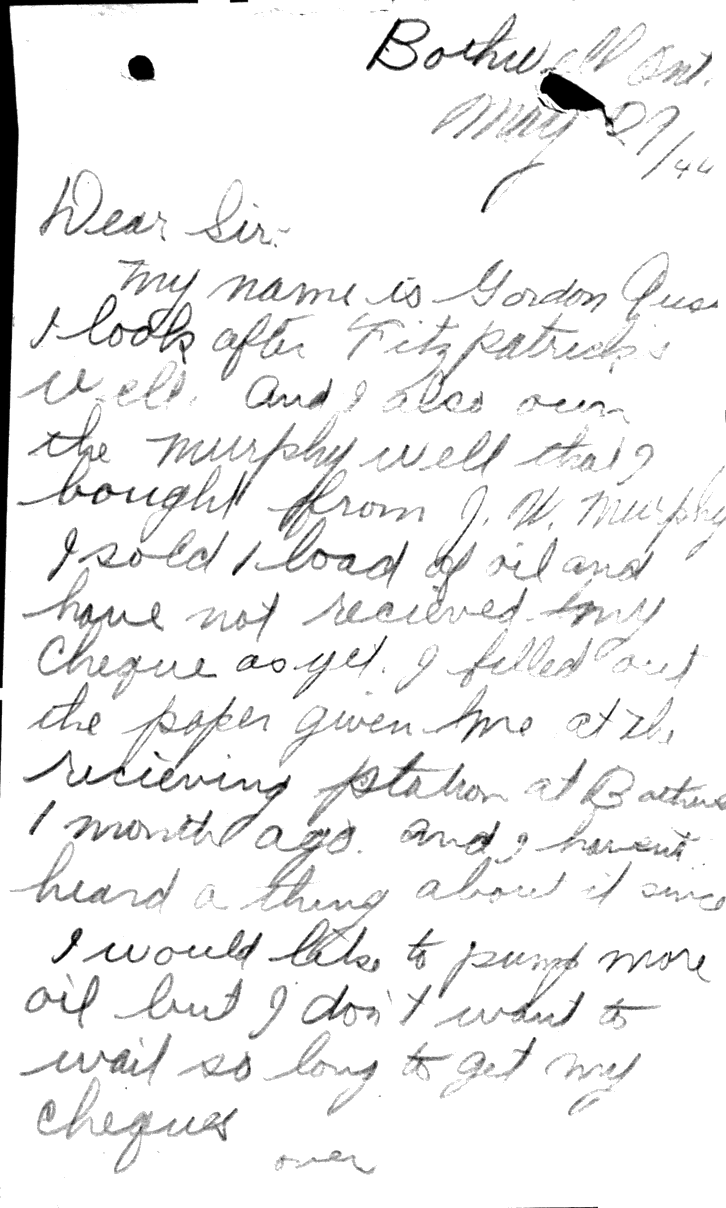 Bothwell Ont.
May 27/44
Dear Sir:-
My name is Gordon
I look after Fitzpatrick's
well. And I also own
the Murphy well that I
bought from J. W. Murphy
I sold 1 load of oil and
have not recieved my
cheque as yet. I filled out
the paper given me at the
recieving station at
1 month ago. and I havent
heard a thing about it since
I would like to pump more
oil but I don't want to
wait so long to get my
cheques
over